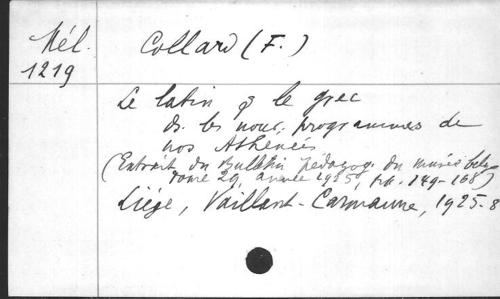 Mél.
1219
Collard (F.)
Le latin & le grec
ds. les nouv. programmes de
nos Athénées
(Extrait du Bulletin pédagog. du musée belge,
tome 29, année 1925, pp. 149-168)
Liége, Vaillant-Carmanne, 1925. 8